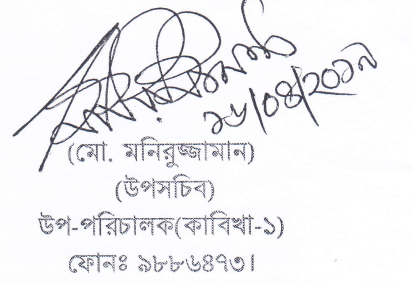 ১৬/০৪/২০১৯
(মো. মনিরুজ্জামান)
(উপসচিব)
উপ-পরিচালক(কাবিখা-১)
ফোনঃ ৯৮৮৬৪৭৩।